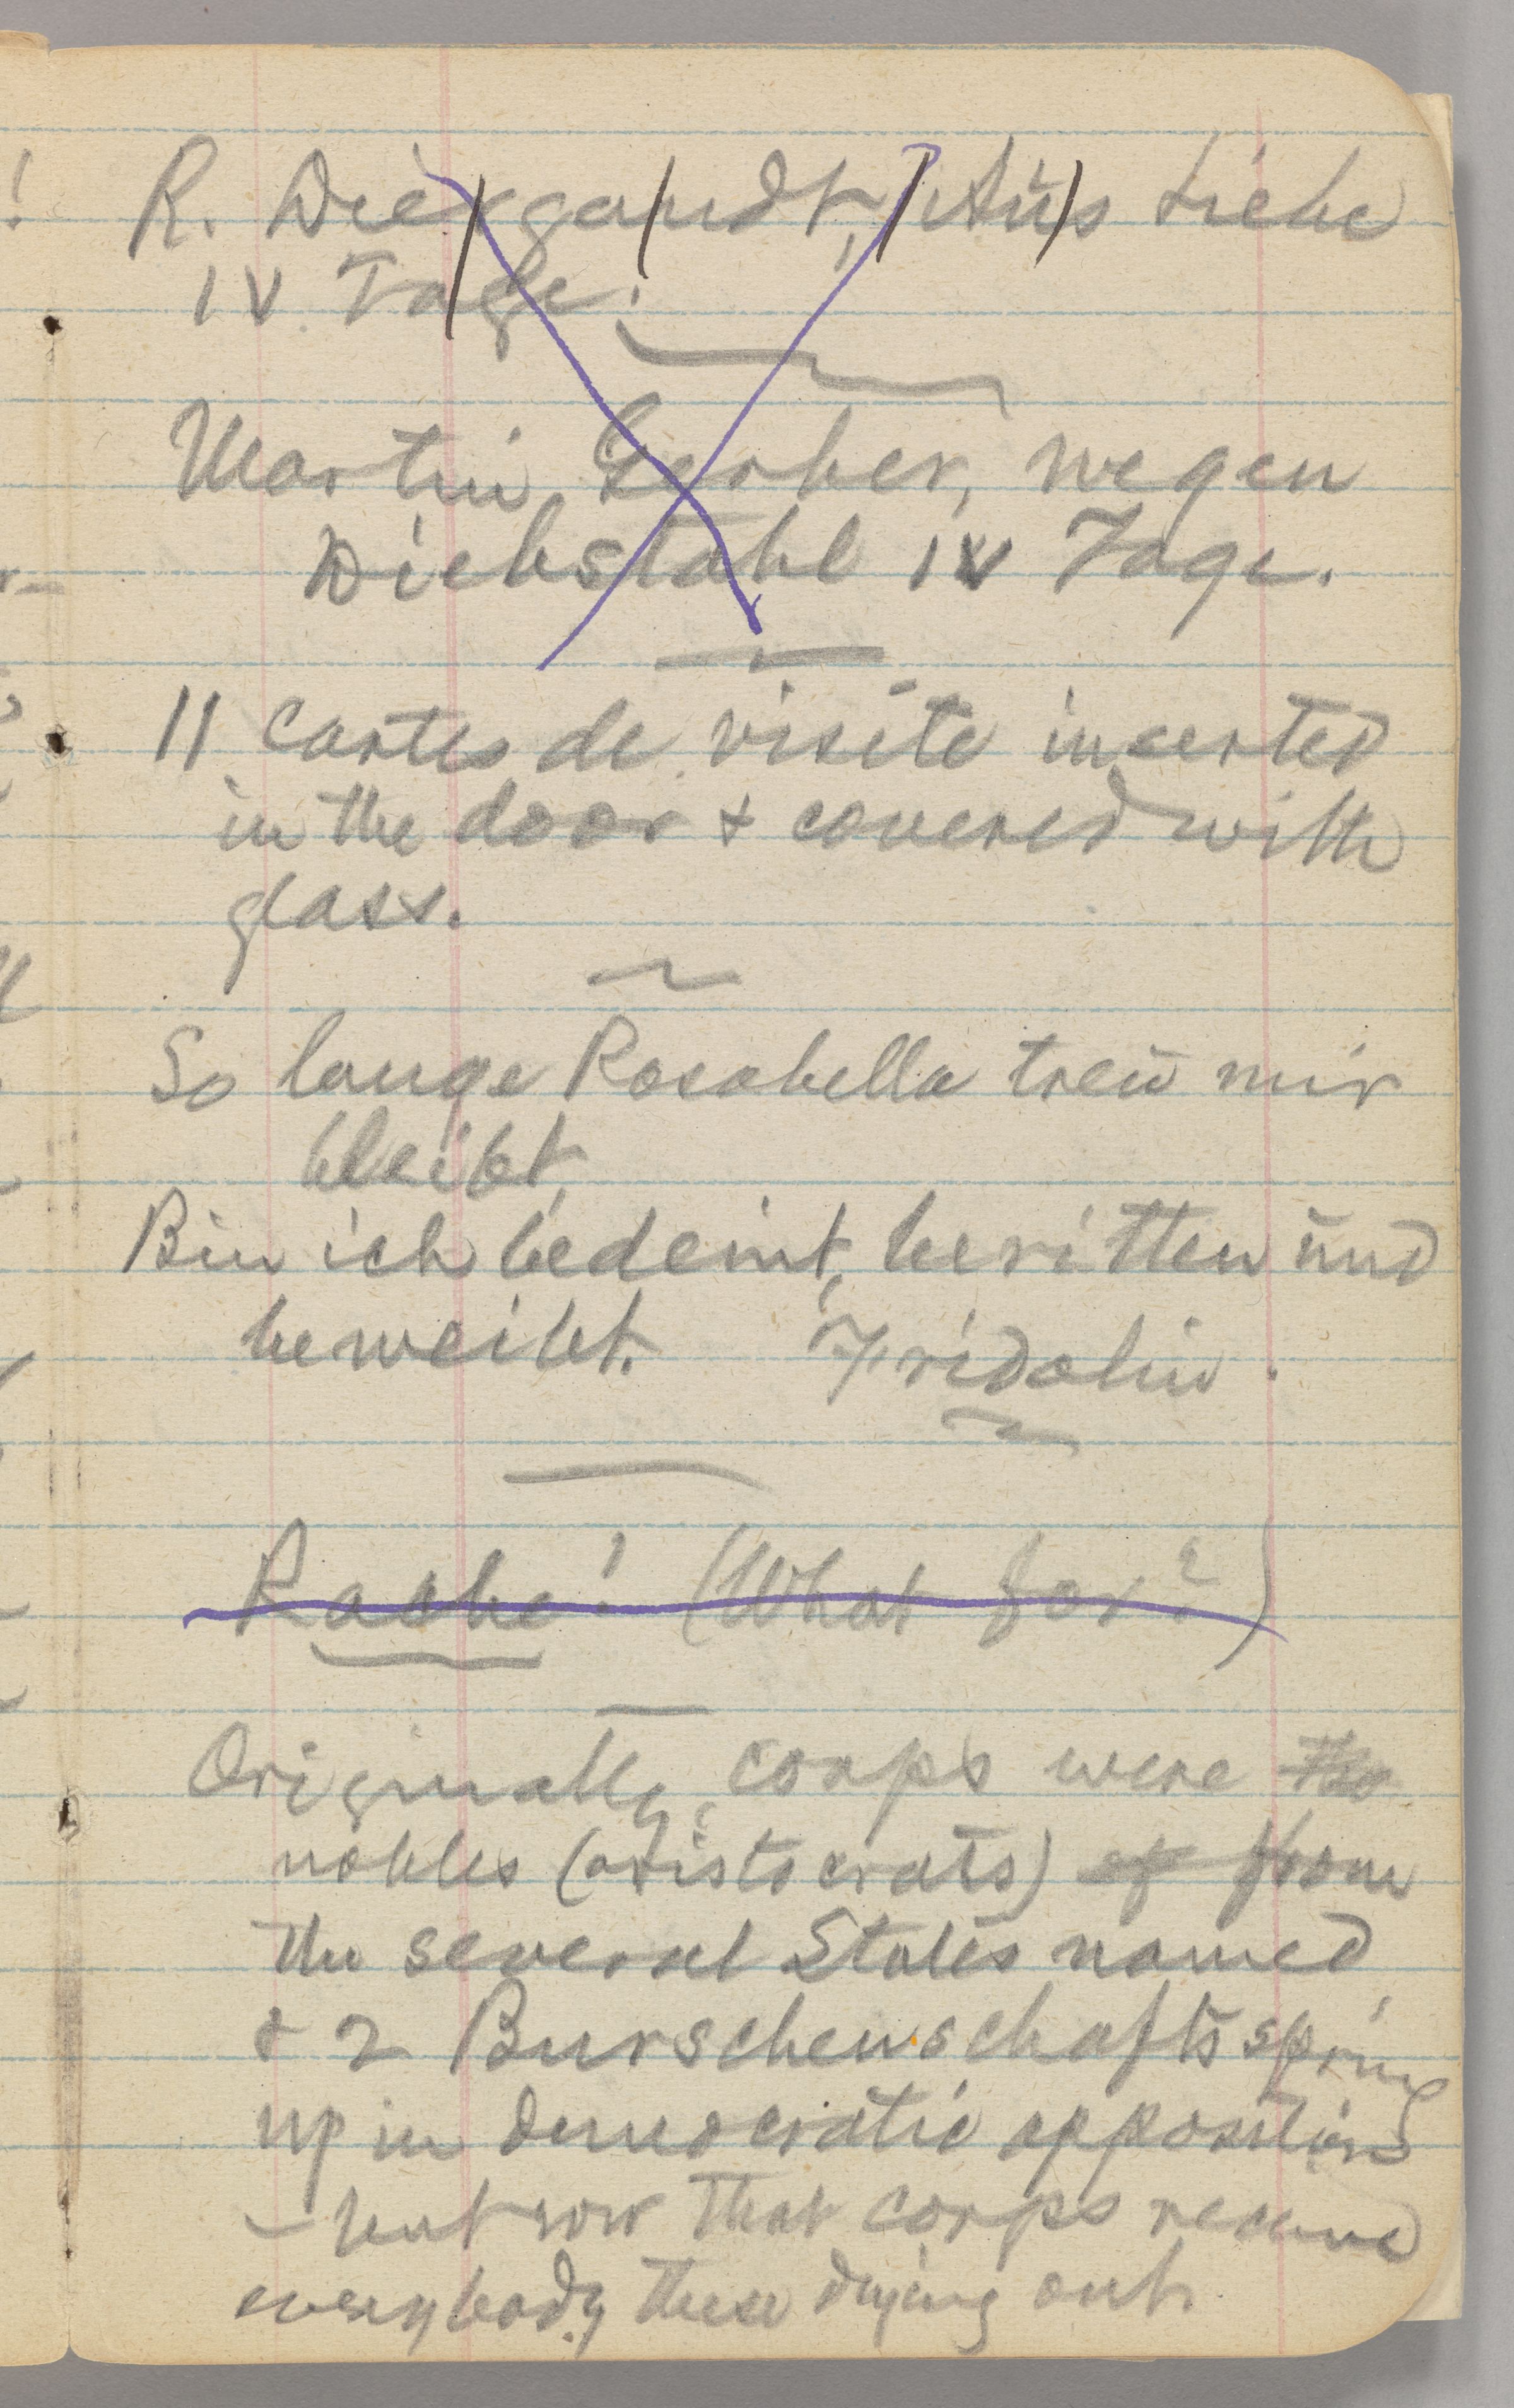 R. Diergandt, Aus Liebe
IV Tage.
Martin Gerber, wegen
Diebstahl IV Tage.
11 cartes de visite inserted
in the door & covered with
glass.
So lange Rosabella treu mir
bleibt,
Bin ich bedeint, beritten und
beweibt. Fridolin.
Rache! (What for?)
Originally, corps were the
nobles (aristocrats) of from
the several States named,
& 2 Burschenschafts spring
up in democratic opposition
– but now that corps receive
everybody, these dying out.